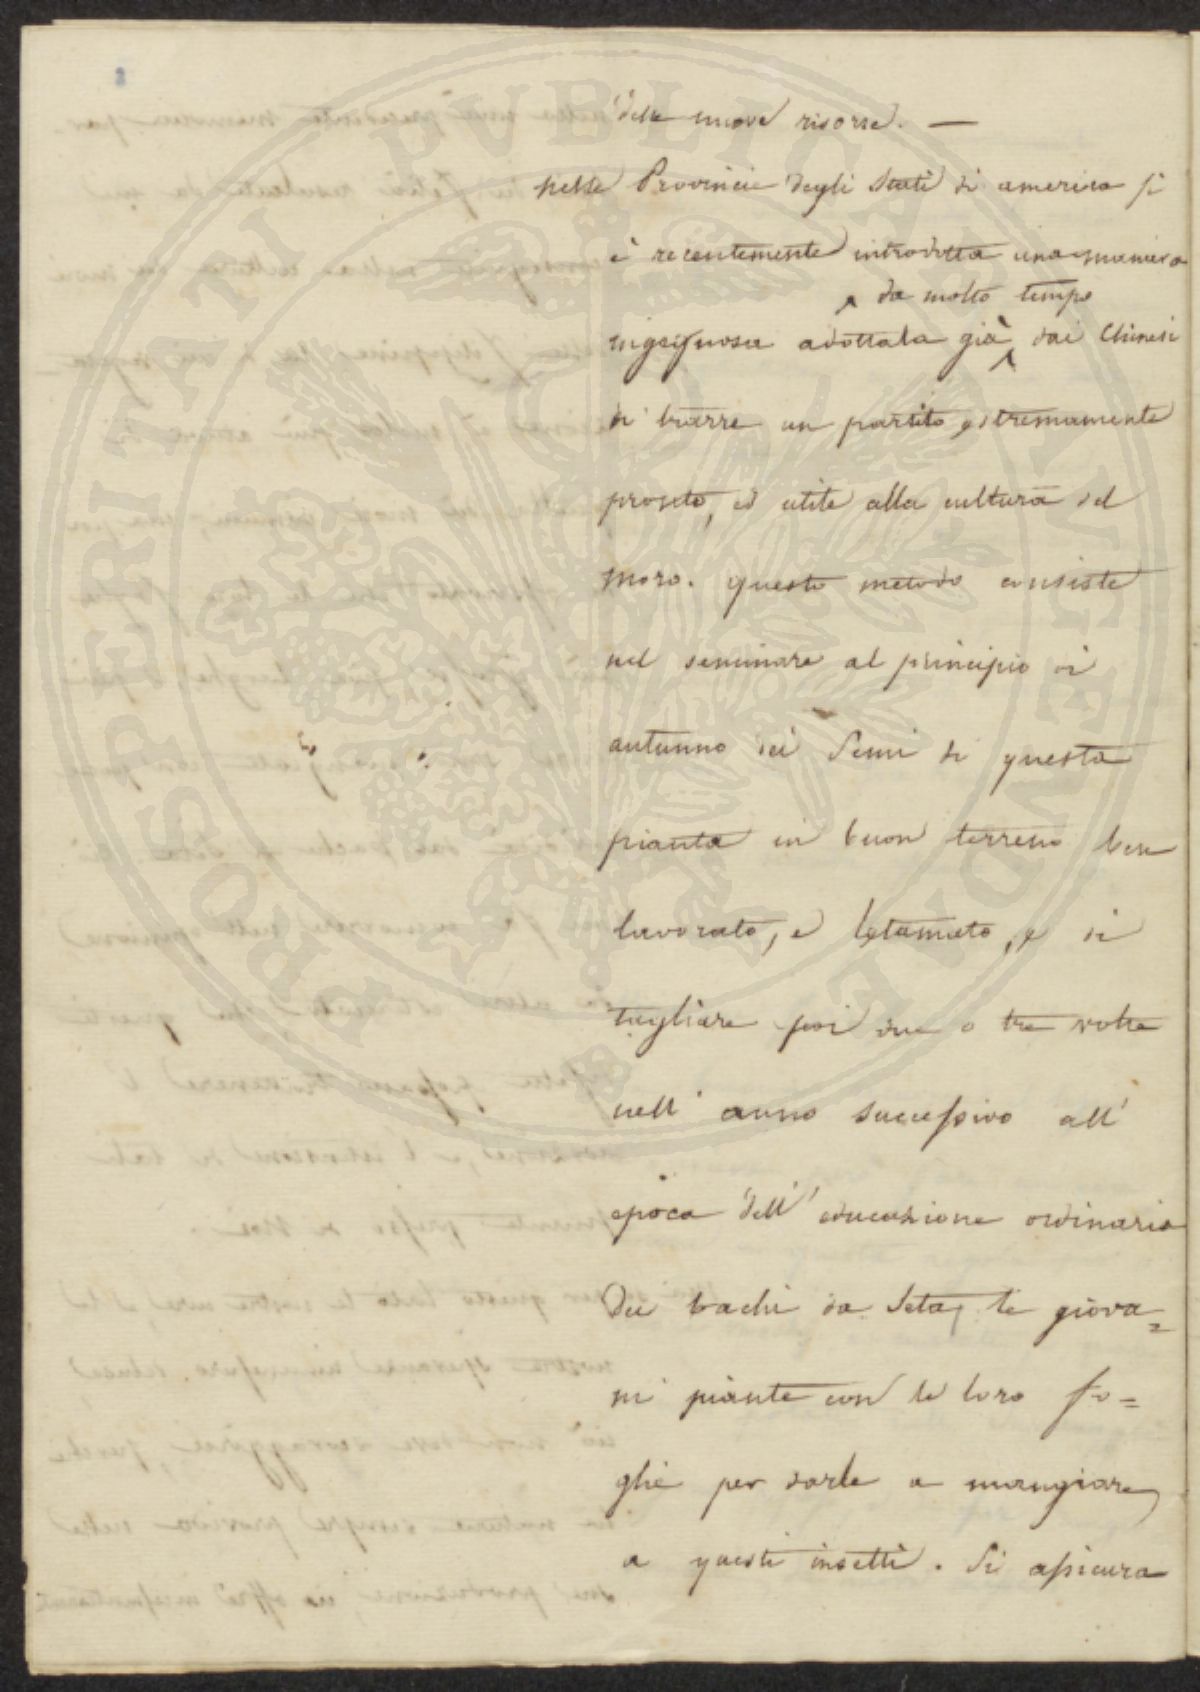 2
delle nuove risorse. —
nelle Provincie degli Stati di america si
è recentemente introdotta una maniera
da molto tempo
ingegnosa adottata già dai Chinesi
di trarre un partito estremamente
pronto, ed utile alla cultura del
moro. questo metodo consiste
nel seminare al principio di
autunno dei Semi di questa
pianta in buon terreno ben
lavorato, e letamato, e di
tagliare poi due o tre volte
nell' anno successivo all'
epoca dell' educazione ordinaria
Dei bachi da Seta, le giova=
ni piante con le loro fo=
glie per darle a mangiare
a questi insetti. Si assicura
PROSPERITATI PVBLICAE AVGENDAE